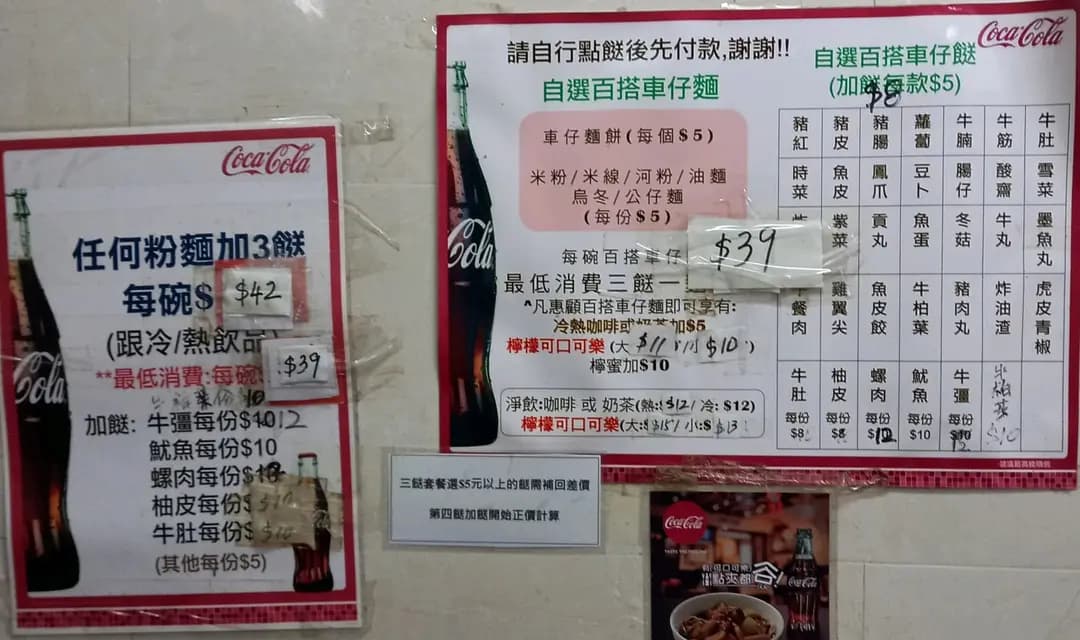 Coca-Cola
任何粉麵加3餸
每碗$ $42
(跟冷/熱飲品
**最低消費:每碗 $39
加餸: 牛彊每份$1012
魷魚每份$10
螺肉每份$
柚皮每份$
牛肚每份$
(其他每份$5)
Cola
請自行點餸後先付款,謝謝!!
自選百搭車仔麵
車仔麵餅(每個$5)
米粉/米線/河粉/油麵
烏冬/公仔麵
(每份$5)
每碗百搭車仔 $39
最低消費三餸一
^凡惠顧百搭車仔麵即可享有:
冷熱咖啡或奶茶加$5
檸檬可口可樂(大 $11 小 $10)
檸蜜加$10
淨飲:咖啡 或 奶茶(熱:$12/ 冷: $12)
檸檬可口可樂(大:$15 小:$13
Cola
Coca-Cola
自選百搭車仔餸
(加餸每款$5)
$8
豬紅 豬皮 豬腸 蘿蔔 牛腩 牛筋 牛肚
時菜 魚皮 鳳爪 豆卜 腸仔 酸齋 雪菜
紫菜 貢丸 魚蛋 冬菇 牛丸 墨魚丸
餐肉 雞翼尖 魚皮餃 牛柏葉 豬肉丸 炸油渣 虎皮青椒
牛肚 柚皮 螺肉 魷魚 牛彊
每份$8 每份$8 每份12 每份$10 每份$10 12 $10
三餸套餐選$5元以上的餸需補回差價
第四餸加餸開始正價計算
Coca-Cola
點夾都
Coca-Cola